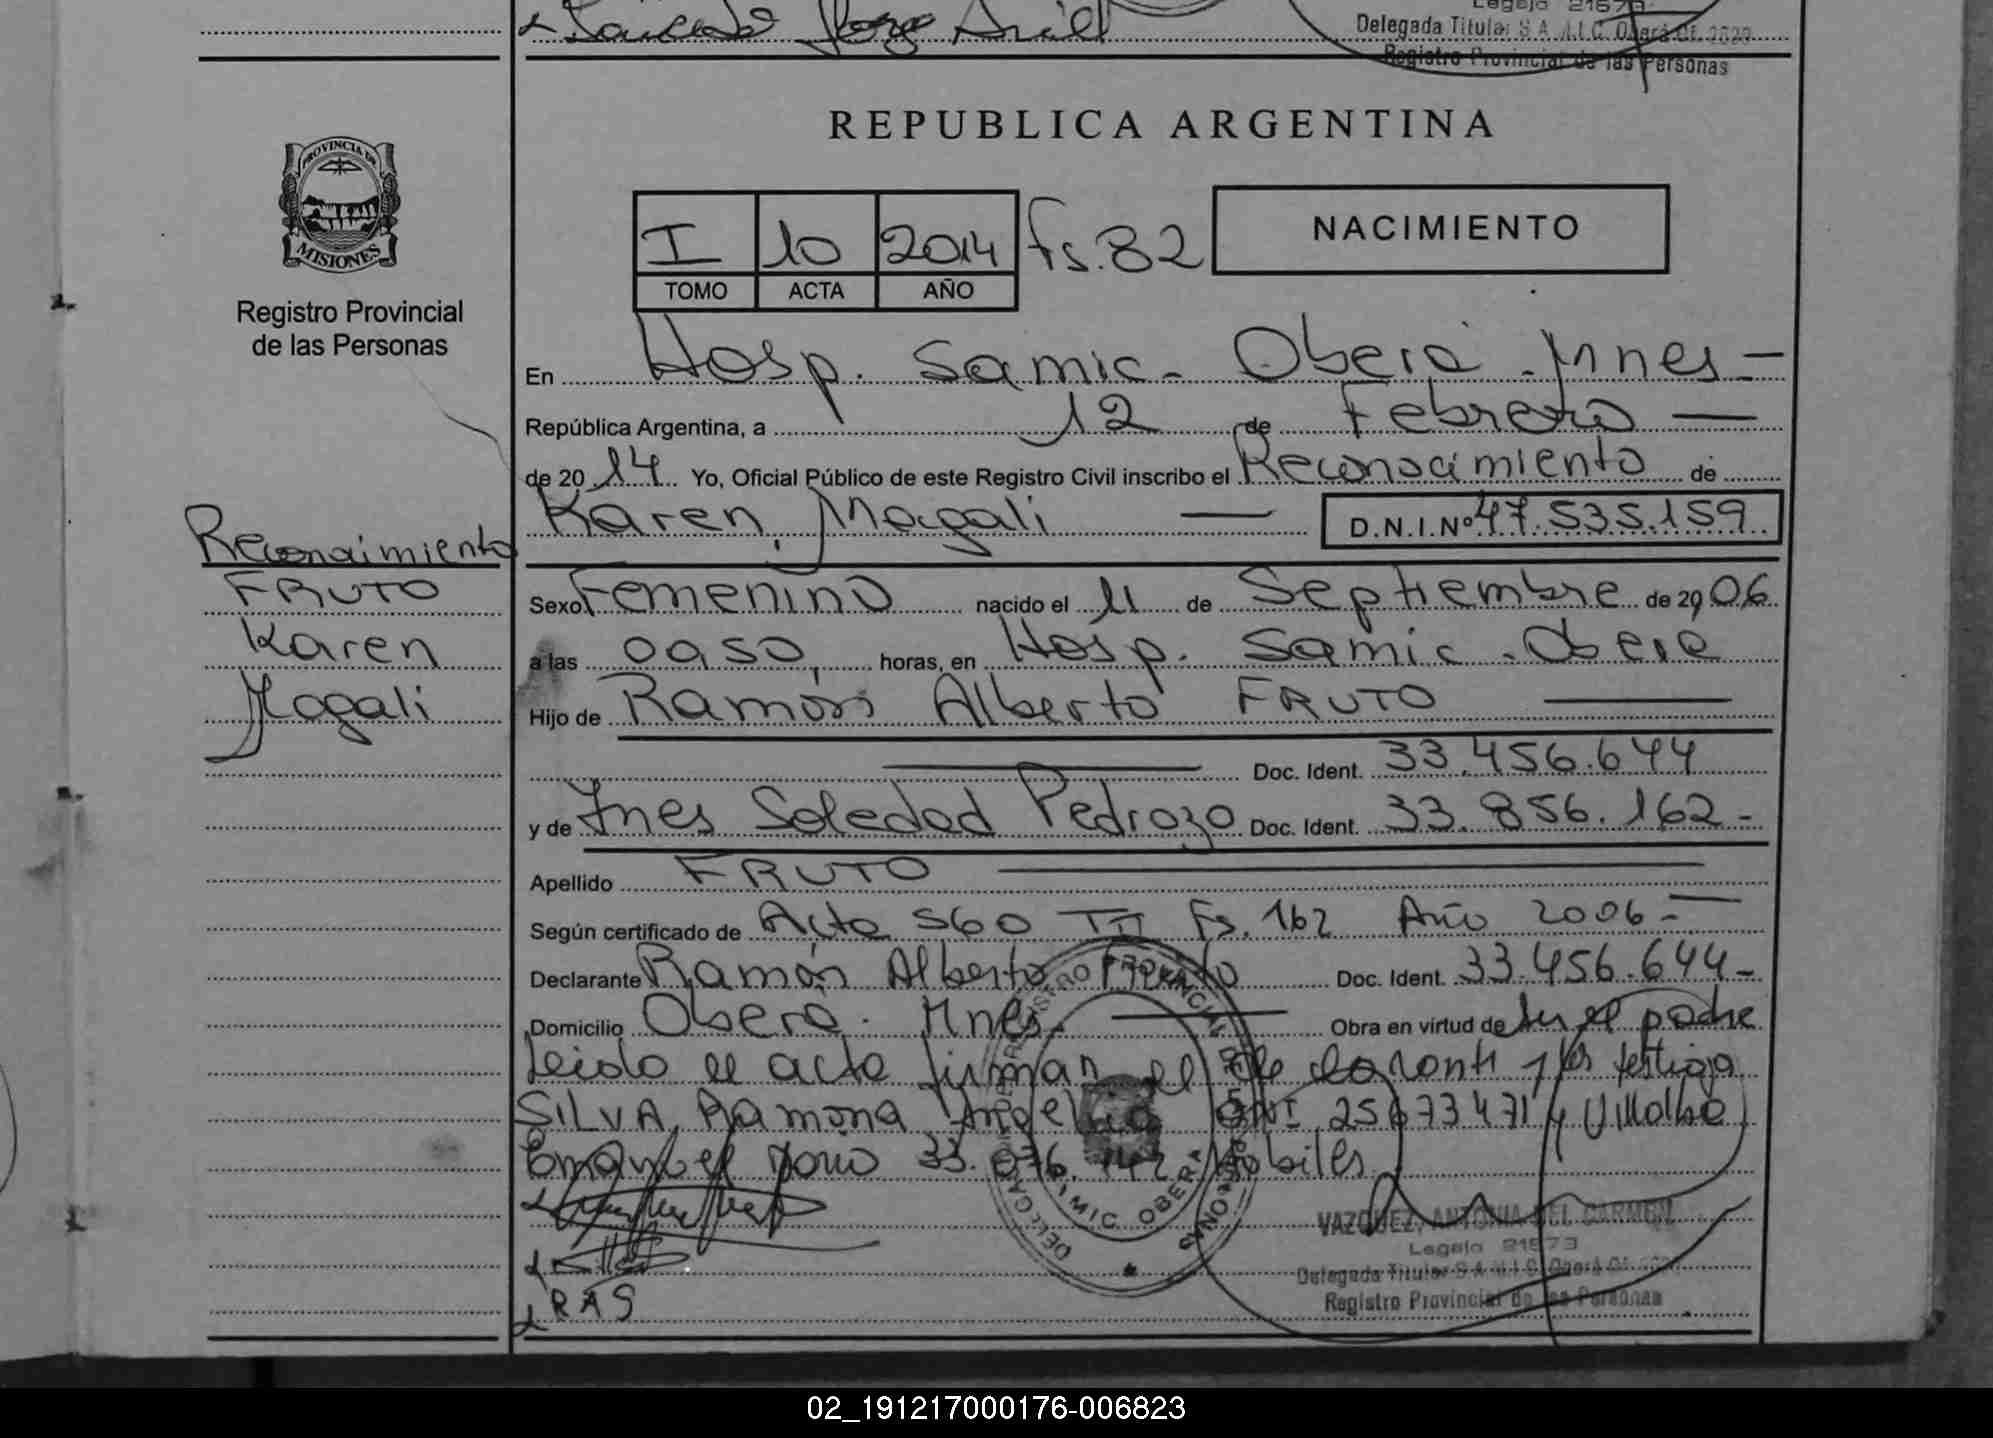 Legajo 21573
Delegada Titular S.A.M.I.C. Oberá Of. 2020
Registro Provincial de las Personas
REPUBLICA ARGENTINA
PROVINCIA DE
MISIONES
Registro Provincial
de las Personas
I 10 2014 Fs. 82
TOMO ACTA AÑO
NACIMIENTO
En Hosp. Samic - Oberá - Mnes -
República Argentina, a 12 de Febrero
de 2014 Yo, Oficial Público de este Registro Civil inscribo el Reconocimiento de
Karen Magali D.N.I.Nº 47.535.159
Reconocimiento
FRUTO
Karen
Magali
Sexo Femenino nacido el 11 de Septiembre de 2006
a las 0950 horas, en Hosp. Samic - Oberá
Hijo de Ramón Alberto FRUTO
Doc. Ident. 33.456.644
y de Ines Soledad Pedrozo Doc. Ident. 33.856.162 -
Apellido FRUTO
Según certificado de Acta 560 TII Fs. 162 Año 2006 -
Declarante Ramón Alberto Fruto Doc. Ident. 33.456.644 -
Domicilio Oberá - Mnes - Obra en virtud de ser el padre
Leido el acta firman el declarante y los testigos
SILVA, Ramona DNI 25673471 y Villalba
Emanuel 33.076.142 Hábiles
REGISTRO PROVINCIAL DE LAS PERSONAS
DELEGACION SAMIC OBERA
VAZQUEZ, ANTONIA DEL CARMEN
Legajo 21573
Delegada Titular S.A.M.I.C. Oberá Of. 2020
Registro Provincial de las Personas
RAS
02_191217000176-006823